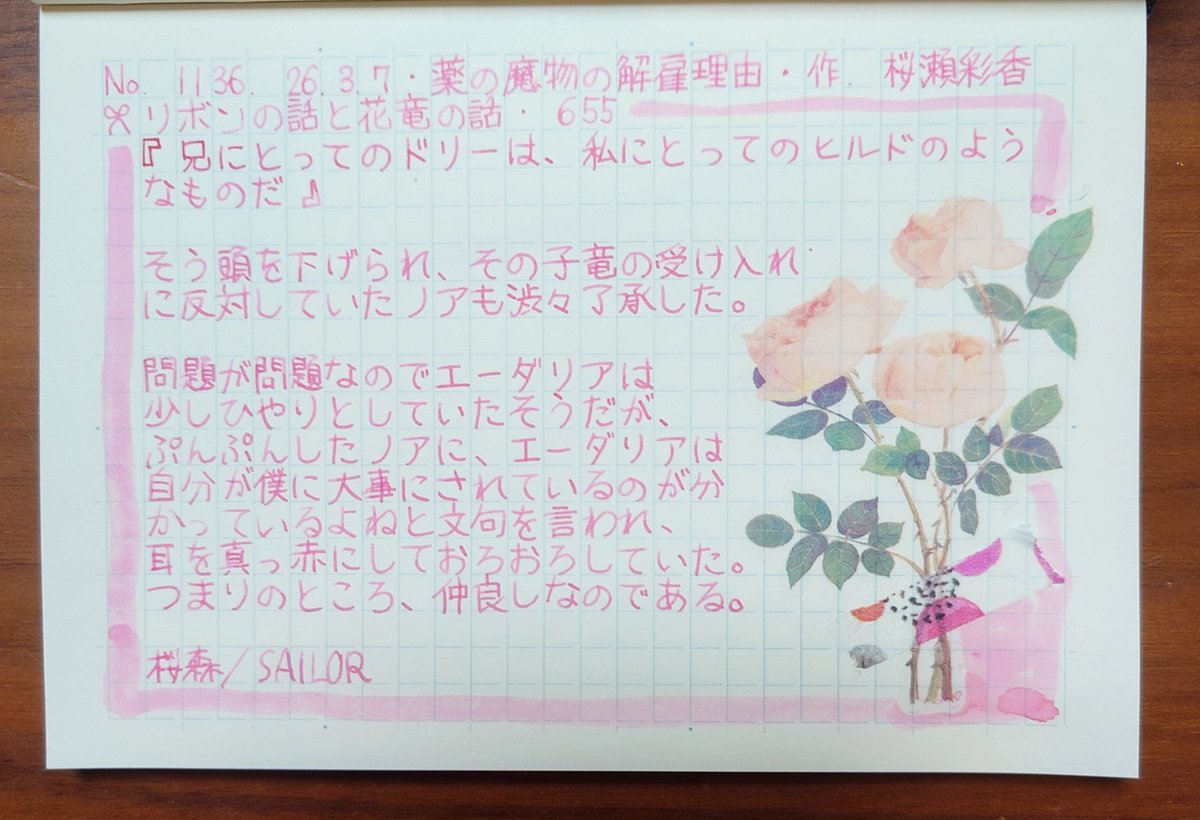 No. 1136. 26.3.7・薬の魔物の解雇理由・作. 桜瀬彩香
リボンの話と花竜の話・655
『兄にとってのドリーは、私にとってのヒルドのよう
なものだ』
そう頭を下げられ、その子竜の受け入れ
に反対していたノアも渋々了承した。
問題が問題なのでエーダリアは
少しひやりとしていたそうだが、
ぷんぷんしたノアに、エーダリアは
自分が僕に大事にされているのが分
かっているよねと文句を言われ、
耳を真っ赤にしておろおろしていた。
つまりのところ、仲良しなのである。
桜森/SAILOR